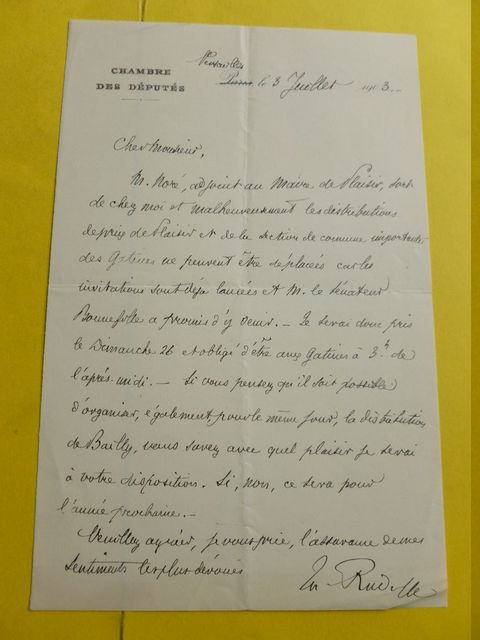 CHAMBRE
DES DÉPUTÉS
Versailles
Paris, le 3 Juillet 1913.
Cher Monsieur,
M. Noré, adjoint au Maire de Plaisir, sort
de chez moi et malheureusement les distributions
de prix de Plaisir et de la section de commune importante
des Gatines ne peuvent être déplacées car les
invitations sont déjà lancées et M. le Sénateur
Bonnefille a promis d'y venir. — Je serai donc pris
le Dimanche 26 et obligé d'être aux Gatines à 3h de
l'après-midi. — Si vous pensez qu'il soit possible
d'organiser, également, pour le même jour, la distribution
de Bailly, vous savez avec quel plaisir je serai
à votre disposition. Si, non, ce sera pour
l'année prochaine. —
Veuillez agréer, je vous prie, l'assurance de mes
sentiments les plus dévoués